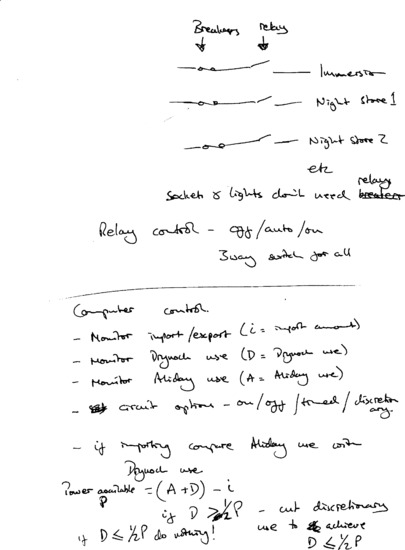 Breakers relay
Immersion
Night Store 1
Night Store 2
etc
relays
Sockets & lights don't need breakers
Relay control - off/auto/on
3way switch for all
Computer control.
- Monitor import/export (i = import amount)
- Monitor Drynoch use (D = Drynoch use)
- Monitor Aliday use (A = Aliday use)
- set circuit options - on/off/timed/discretion
ary.
- if importing compare Aliday use with
Drynoch use
Power available = (A+D) - i
P
if D > ½P - cut discretionary
if D ≤ ½P do nothing! use to achieve
D ≤ ½P